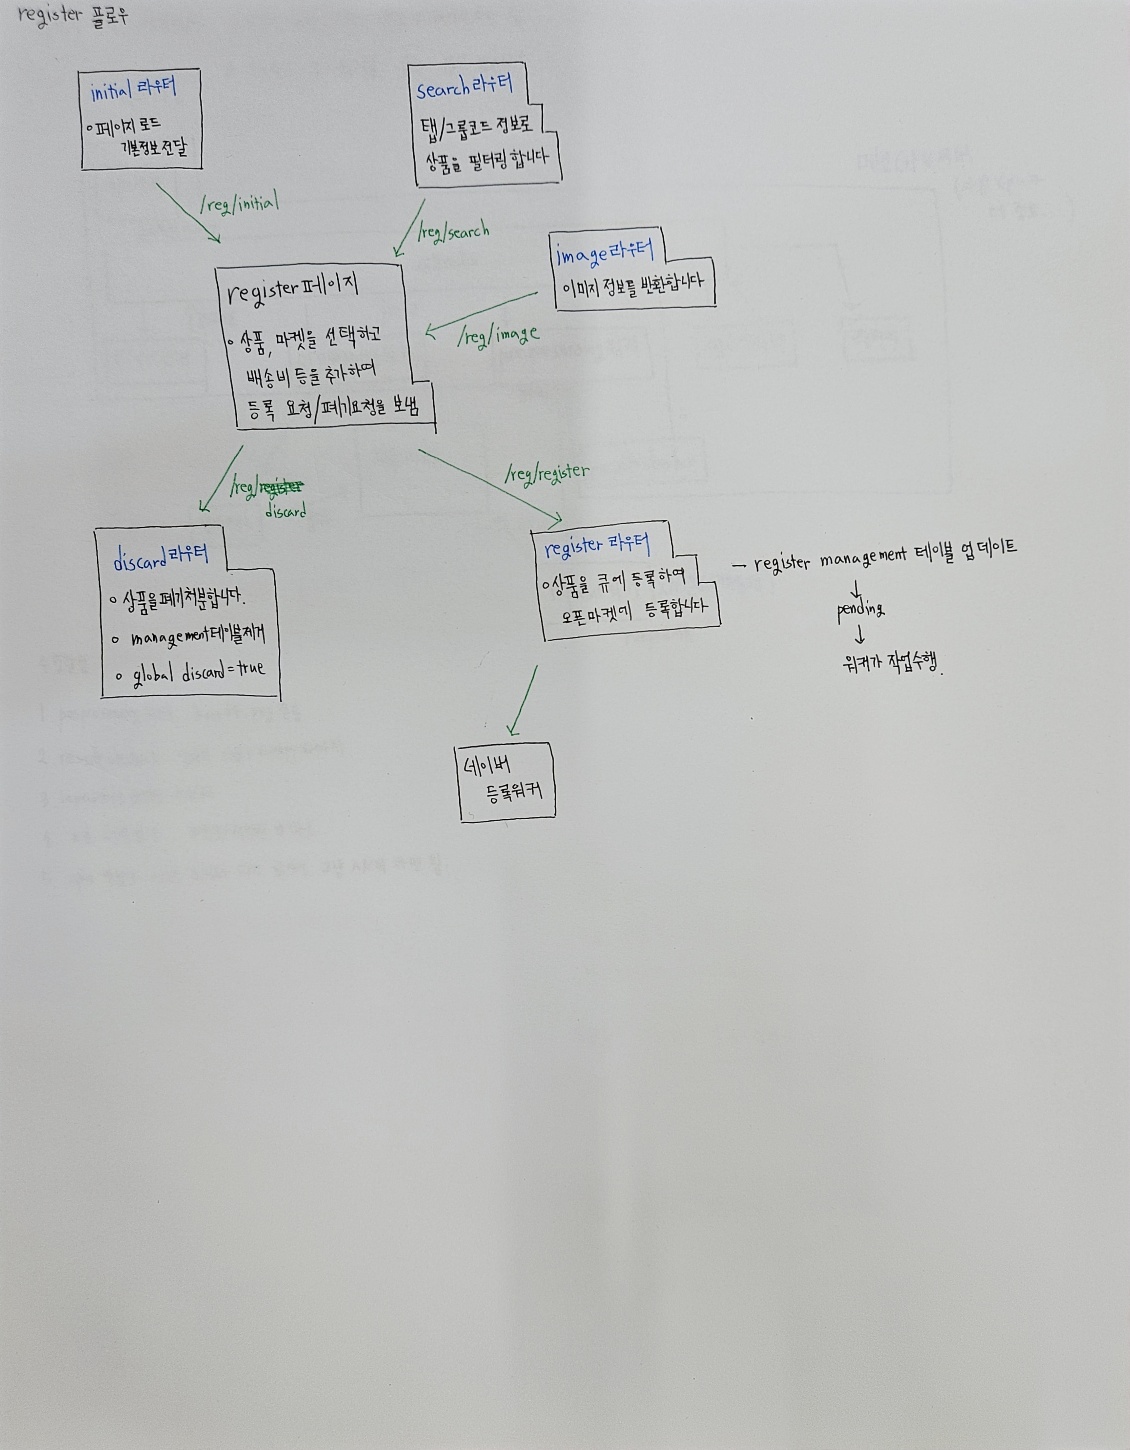 register 플로우
initial 라우터
◦ 페이지 로드
기본정보 전달
search 라우터
탭/그룹코드 정보로
상품을 필터링 합니다
/reg/initial
/reg/search
image 라우터
이미지 정보를 반환합니다
/reg/image
register 페이지
◦ 상품, 마켓을 선택하고
배송비 등을 추가하여
등록 요청/폐기요청을 보냄
/reg/register
discard
/reg/register
discard 라우터
◦ 상품을 폐기처분합니다.
◦ management 테이블 제거
◦ global discard = true
register 라우터
◦ 상품을 큐에 등록하여
오픈마켓에 등록합니다
→ register management 테이블 업데이트
↓
pending
↓
워커가 작업수행.
네이버
등록워커